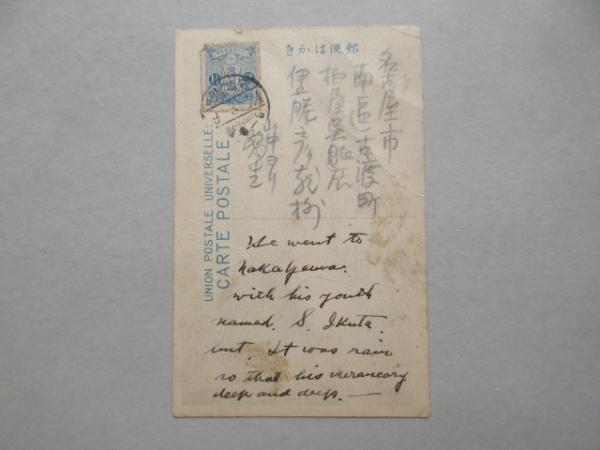 きかは便郵
UNION POSTALE UNIVERSELLE.
CARTE POSTALE
名古屋市
南區古渡町
柏屋呉服店
伊藤彦
愛生
We went to
Nakayama.
with his youth
named. S. Ikuta.
but. It was rain
so that his
deep and deep. —